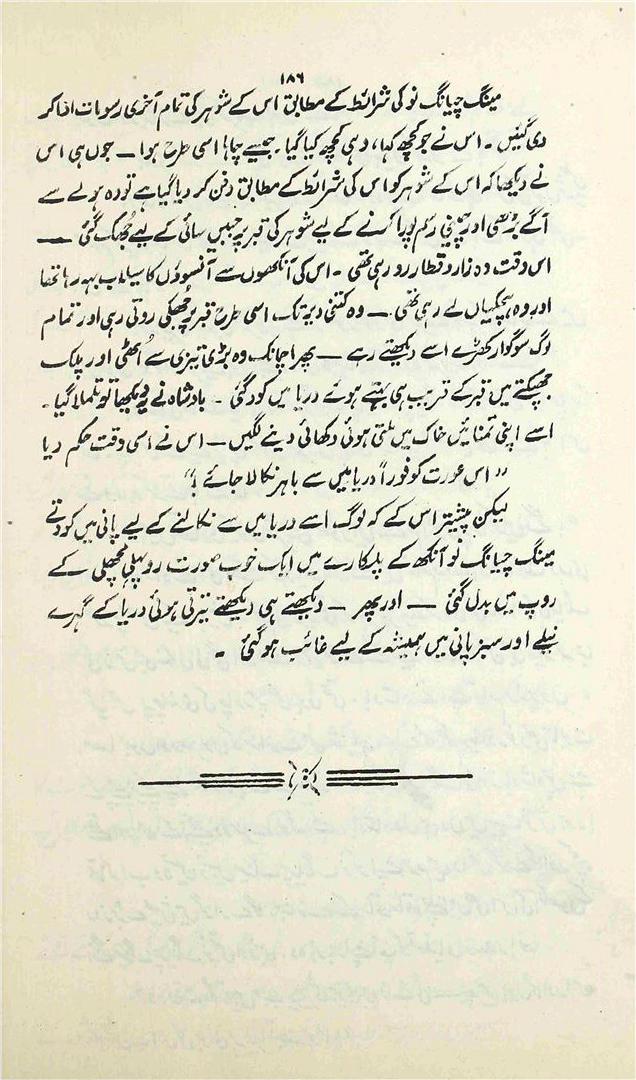 ۱۸۶
مینگ چیانگ نو کی شرائط کے مطابق اس کے شوہر کی تمام آخری رسومات ادا کر
دی گئیں ۔ اس نے جو کچھ کہا، وہی کچھ کیا گیا۔ جیسے چاہا اسی طرح ہوا — جوں ہی اس
نے دیکھا کہ اس کے شوہر کو اس کی شرائط کے مطابق دفن کر دیا گیا ہے تو وہ ہولے سے
آگے بڑھی اور اپنی رسم پورا کرنے کے لیے شوہر کی قبر پر جبیں سائی کے لیے جُھک گئی —
اس وقت وہ زار و قطار رو رہی تھی ۔ اس کی آنکھوں سے آنسوؤں کا سیلاب بہہ رہا تھا
اور وہ ہچکیاں لے رہی تھی — وہ کتنی دیر تک اسی طرح قبر پر جُھکی روتی رہی اور تمام
لوگ سوگوار کھڑے اسے دیکھتے رہے — پھر اچانک وہ بڑی تیزی سے اُٹھی اور پلک
جھپکتے میں قبر کے قریب ہی بہتے ہوئے دریا میں کود گئی ۔ بادشاہ نے یہ دیکھا تو تلملا گیا ۔
اسے اپنی تمنائیں خاک میں ملتی ہوئی دکھائی دینے لگیں — اس نے اسی وقت حکم دیا
"اس عورت کو فوراً دریا میں سے باہر نکالا جائے !"
لیکن پیشتر اس کے کہ لوگ اسے دریا میں سے نکالنے کے لیے پانی میں کودتے
مینگ چیانگ نو آنکھ کے پلکارے میں ایک خوب صورت روپہلی مچھلی کے
روپ میں بدل گئی — اور پھر — دیکھتے ہی دیکھتے تیرتی ہوئی دریا کے گہرے
نیلے اور سبز پانی میں ہمیشہ کے لیے غائب ہو گئی ۔